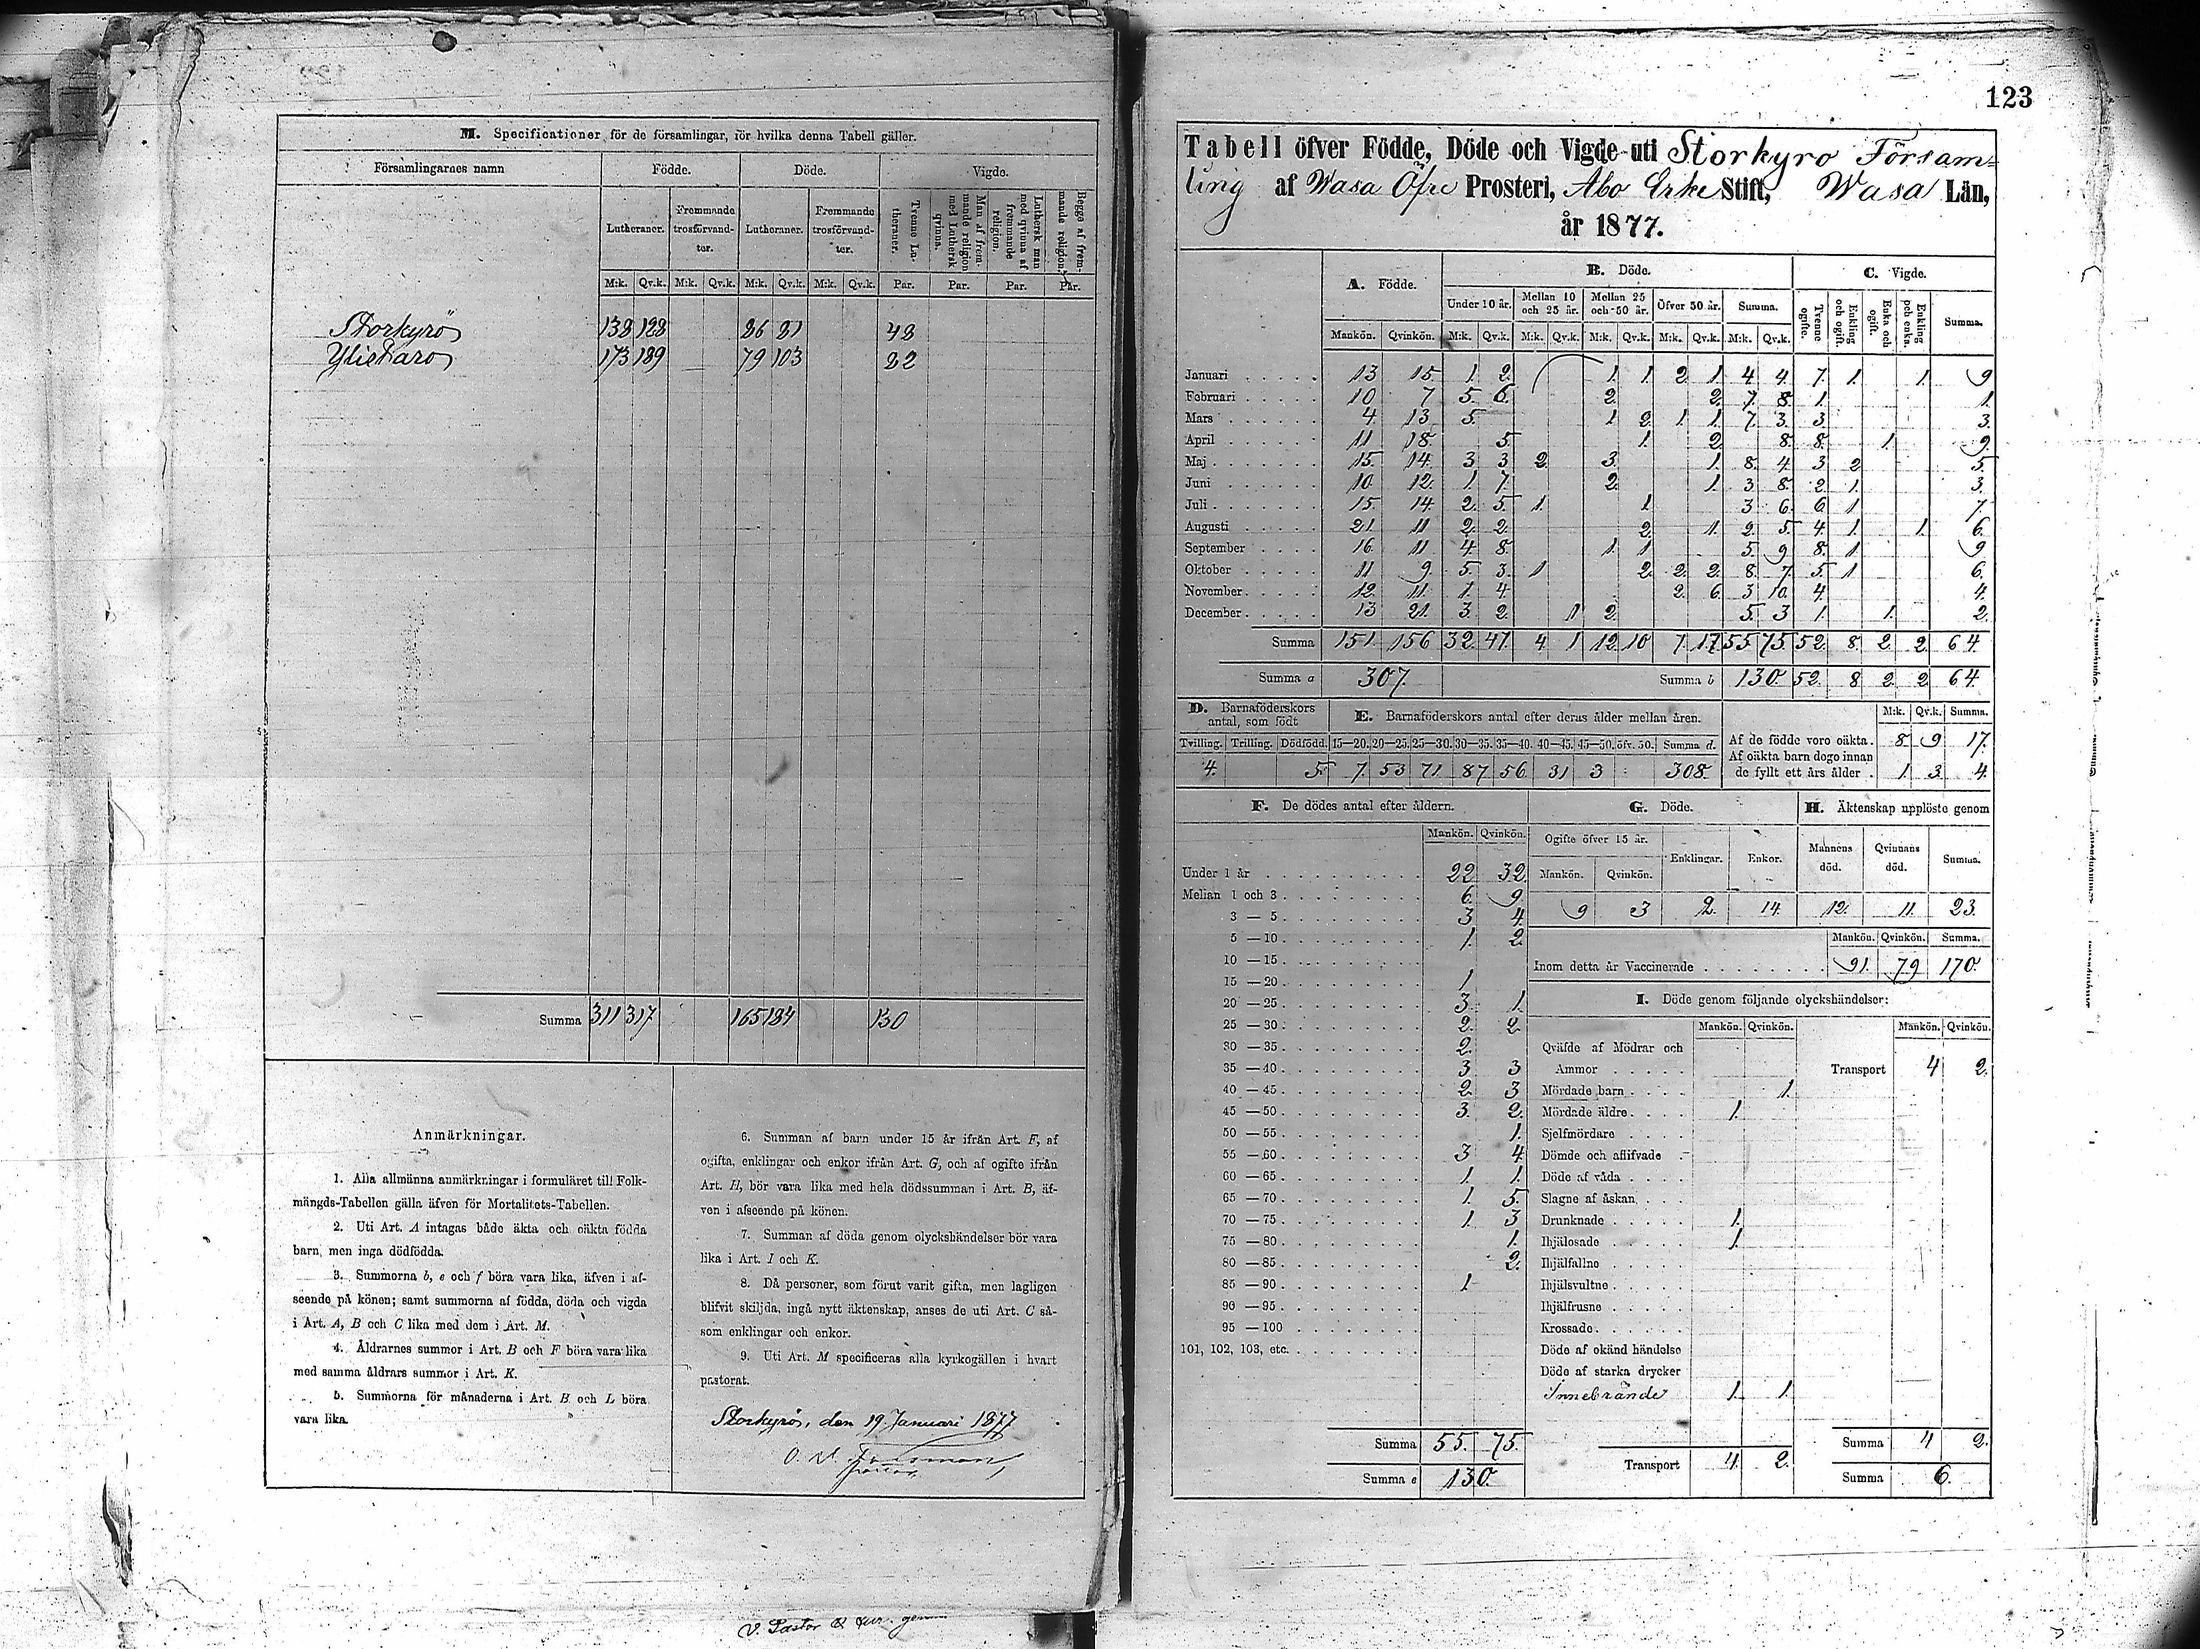 M. Specificationer för de församlingar, för hvilka denna Tabell gäller.
Församlingarnes namn Födde. Döde. Vigde.
Lutheraner. Fremmande trosförvandter. Lutheraner. Fremmande trosförvandter. Tvenne Lutheraner. Man af fremmande religion med Luthersk qvinna. Luthersk man med qvinna af fremmande religion. Begge af fremmande religion.
M:k. Qv.k. M:k. Qv.k. M:k. Qv.k. M:k. Qv.k. Par. Par. Par. Par.
Storkyrö 138 128 86 81 48
Ylistaro 173 189 79 103 82
Summa 311 317 165 184 130
Anmärkningar.
1. Alla allmänna anmärkningar i formuläret till Folk-
mängds-Tabellen gälla äfven för Mortalitets-Tabellen.
2. Uti Art. A intagas både äkta och oäkta födda
barn, men inga dödfödda.
3. Summorna b, e och f böra vara lika, äfven i af-
seende på könen; samt summorna af födda, döda och vigda
i Art. A, B och C lika med dem i Art. M.
4. Åldrarnes summor i Art. B och F böra vara lika
med samma åldrars summor i Art. K.
5. Summorna för månaderna i Art. B och L böra
vara lika.
6. Summan af barn under 15 år ifrån Art. F, af
ogifta, enklingar och enkor ifrån Art. G, och af ogifte ifrån
Art. H, bör vara lika med hela dödssumman i Art. B, äf-
ven i afseende på könen.
7. Summan af döda genom olyckshändelser bör vara
lika i Art. I och K.
8. Då personer, som förut varit gifta, men lagligen
blifvit skiljda, ingå nytt äktenskap, anses de uti Art. C så-
som enklingar och enkor.
9. Uti Art. M specificeras alla kyrkogällen i hvart
pastorat.
Storkyrö, den 19 Januari 1877
V. Pastor
123
Tabell öfver Födde, Döde och Vigde uti Storkyro Försam-
ling af Wasa Öfre Prosteri, Åbo Erke Stift, Wasa Län,
år 1877.
A. Födde. B. Döde. C. Vigde.
Under 10 år. Mellan 10 och 25 år. Mellan 25 och 50 år. Öfver 50 år. Summa. Tvenne ogifte. Enkling och ogift. Enka och ogift. Enkling och enka. Summa.
Mankön. Qvinkön. M:k. Qv.k. M:k. Qv.k. M:k. Qv.k. M:k. Qv.k. M:k. Qv.k.
Januari 13 15. 1. 2. 1. 1. 2. 1. 4. 4. 7. 1. 1. 9
Februari 10 7 5. 6. 2. 2. 7. 8. 1. 1.
Mars 4. 13. 5. 1 2. 1. 1. 7. 3. 3. 3.
April 11 18. 5. 1. 2. 8. 8. 1. 9.
Maj 15. 14. 3 3 2. 3. 1. 8. 4 3 2 5.
Juni 10. 12. 1. 7. 2. 1. 3 8. 2. 1. 3.
Juli 15. 14 2. 5. 1. 1 3 6. 6 1 7.
Augusti 21. 11 2. 2. 2. 1. 2. 5. 4 1. 1. 6.
September 16. 11 4 8. 1. 1 5. 9 8. 1 9
Oktober 11 9 5. 3. 1 2. 2. 2. 8. 7. 5. 1 6.
November 12. 11. 1. 4 2. 6. 3 10. 4 4.
December 13 21. 3 2. 1 2. 5. 3 1. 1. 2.
Summa 151. 156 32. 47. 4 1 12 10 7. 17 55 75. 52. 8. 2. 2. 64
Summa a 307. Summa b 130. 52. 8 2. 2 64.
D. Barnaföderskors antal, som födt E. Barnaföderskors antal efter deras ålder mellan åren. M:k. Qv.k. Summa.
Tvilling. Trilling. Dödfödd. 15—20. 20—25. 25—30. 30—35. 35—40. 40—45. 45—50. öfv. 50. Summa d.
4. 5. 7. 53 71. 87 56 31 3 308.
Af de födde voro oäkta. 8 9 17.
Af oäkta barn dogo innan
de fyllt ett års ålder . 1. 3. 4.
F. De dödes antal efter åldern.
Mankön. Qvinkön.
Under 1 år 22 32.
Mellan 1 och 3 6. 9
3 — 5 3 4.
5 — 10 1. 2.
10 — 15
15 — 20 1
20 — 25 3. 1.
25 — 30 2. 2.
30 — 35 2.
35 — 40 3 3
40 — 45 2. 3
45 — 50 3. 2.
50 — 55 1.
55 — 60 3 4
60 — 65 1. 1.
65 — 70 1. 5.
70 — 75 1 3
75 — 80 1.
80 — 85 2.
85 — 90 1
90 — 95
95 — 100
101, 102, 103, etc.
Summa 55. 75.
Summa e 130.
G. Döde. H. Äktenskap upplöste genom
Ogifte öfver 15 år. Enklingar. Enkor. Mannens död. Qvinnans död. Summa.
Mankön. Qvinkön.
9 3 2. 14. 12. 11. 23.
Mankön. Qvinkön. Summa.
Inom detta år Vaccinerade 91. 79 170.
I. Döde genom följande olyckshändelser:
Mankön. Qvinkön. Mankön. Qvinkön.
Qväfde af Mödrar och
Ammor Transport 4 2.
Mördade barn 1.
Mördade äldre 1.
Sjelfmördare
Dömde och aflifvade
Döde af våda
Slagne af åskan
Drunknade 1.
Ihjälosade 1.
Ihjälfallne
Ihjälsvultne
Ihjälfrusne
Krossade
Döde af okänd händelse
Döde af starka drycker
Innebrände 1. 1.
Transport 4. 2. Summa 4 2.
Summa 6.